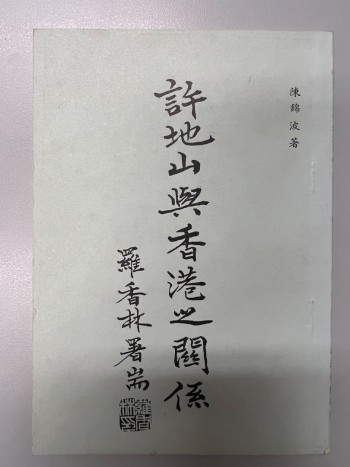 陳錦波著
許地山與香港之關係
羅香林署耑